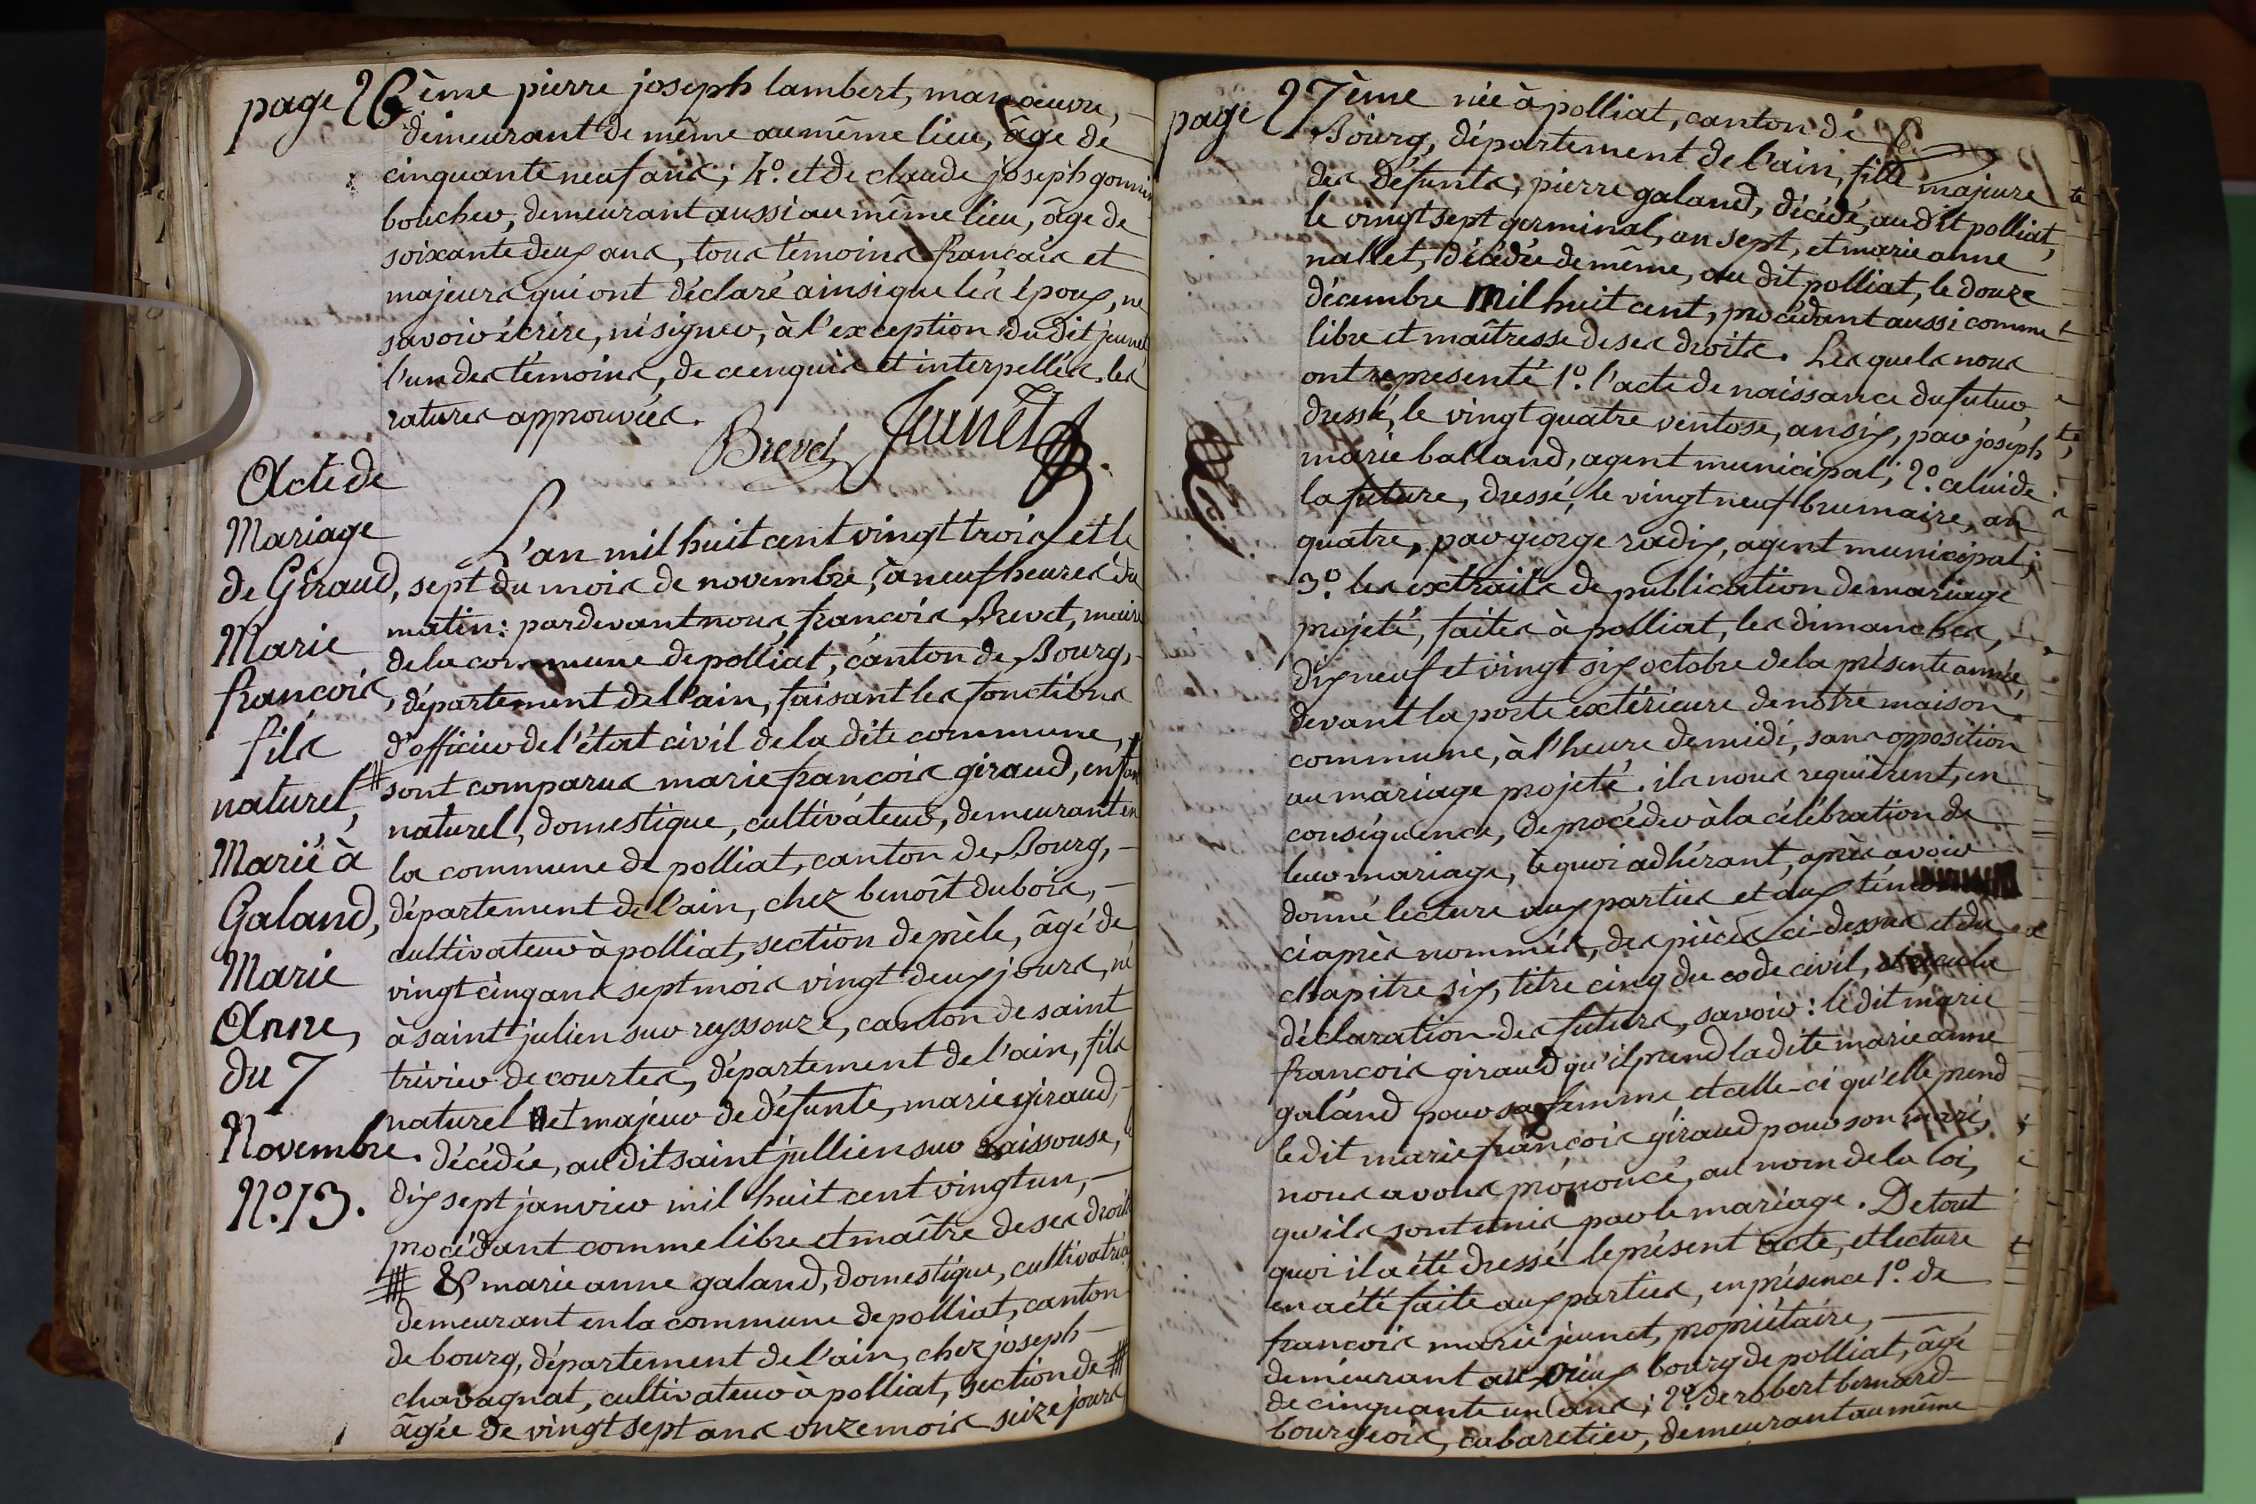 page 26ème pierre joseph lambert, manœuvre,
demeurant de même au même lieu, âge de
cinquante neuf ans; 4.º et de claude joseph gonnin
boucher, demeurant aussi au même lieu, âge de
soixante deux ans, tous témoins français et
majeurs qui ont déclaré ainsi que les époux, ne
savoir écrire, ni signer, à l'exception du dit jeunet
l'un des témoins, de ce enquis et interpellés. les
ratures approuvées.
Brevet Jeunet
Acte de
Mariage
de Giraud,
Marie
françois,
fils
naturel,
Marié à
Galand,
Marie
Anne,
du 7
Novembre.
N.º 13.
L'an mil huit cent vingt trois et le
sept du mois de novembre, à neuf heures du
matin: pardevant nous, françois Brevet, maire
de la commune de polliat, canton de Bourg,
département de l'ain, faisant les fonctions
d'officier de l'état civil de la dite commune,
# sont comparus marie françois giraud, enfant
naturel, domestique, cultivateur, demeurant en
la commune de polliat, canton de Bourg,
département de l'ain, chez benoît dubois,
cultivateur à polliat, section de prèle, âgé de
vingt cinq ans sept mois vingt deux jours, né
à saint julien sur reyssouze, canton de saint
trivier de courtes, département de l'ain, fils
naturel et majeur de défunte, marie giraud,
décédée, au dit saint jullien sur raissouse, l
dix sept janvier mil huit cent vingt un,
procédant comme libre et maître de ses droits
# & marie anne galand, domestique, cultivatrice
demeurant en la commune de polliat, canton
de bourg, département de l'ain, chez joseph
chavagnat, cultivateur à polliat, section de #
âgée de vingt sept ans onze mois seize jours
page 27ème née à polliat, canton de
Bourg, département de l'ain, fille majeure
des défunts, pierre galand, décédé, au dit polliat,
le vingt sept germinal, an sept, et marie anne
nallet, décédée de même, au dit polliat, le douze
décembre mil huit cent, procédant aussi comme
libre et maîtresse de ses droits. Les quels nous
ont representé 1.º l'acte de naissance du futur,
dressé, le vingt quatre ventose, an six, par joseph
marie balland, agent municipal; 2.º celui de
la future, dressé, le vingt neuf brumaire, an
quatre, par george radix, agent municipal;
3.º les extraits de publication de mariage
projeté, faites à polliat, les dimanches,
dix neuf et vingt six octobre de la présente année,
devant la porte extérieure de notre maison
commune, à l'heure de midi, sans opposition
au mariage projeté. ils nous requièrent, en
conséquence, de procéder à la célébration de
leur mariage, à quoi adhérant, après avoir
donné lecture aux parties et aux témoins
ci après nommés, des pièces ci-dessus et du
chapitre six, titre cinq du code civil, et reçu la
déclaration des futurs, savoir: le dit marie
françois giraud qu'il prend la dite marie anne
galand pour sa femme et celle-ci qu'elle prend
le dit marie françois giraud pour son mari,
nous avons prononcé, au nom de la loi,
qu'ils sont unis par le mariage. De tout
quoi il a été dressé le présent acte, et lecture
en a été faite aux parties, en présence 1.º de
françois marie jeunet, propriétaire,
demeurant au vieux bourg de polliat, âgé
de cinquante un ans; 2.º de robert bernard
bourgeois, cabaretier, demeurant au même